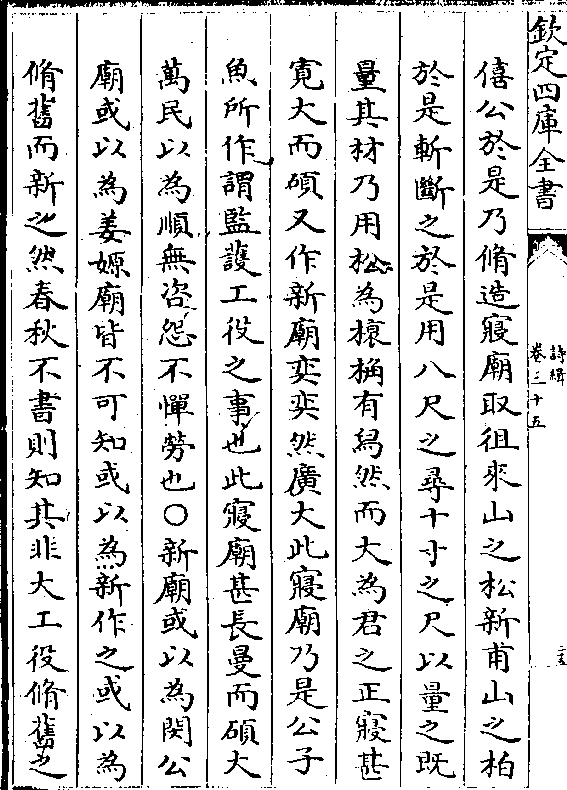 欽定四庫全書
詩緝
卷三十五
僖公於是乃脩造寢廟取徂來山之松新甫山之柏
於是斬斷之於是用八尺之尋十寸之尺以量之既
量其材乃用松為榱桷有舄然而大為君之正寢甚
寛大而碩又作新廟奕奕然廣大此寢廟乃是公子
魚所作謂監護工役之事也此寢廟甚長曼而碩大
萬民以為順無咨怨不憚勞也○新廟或以為閔公
廟或以為姜嫄廟皆不可知或以為新作之或以為
脩舊而新之然春秋不書則知其非大工役脩舊之